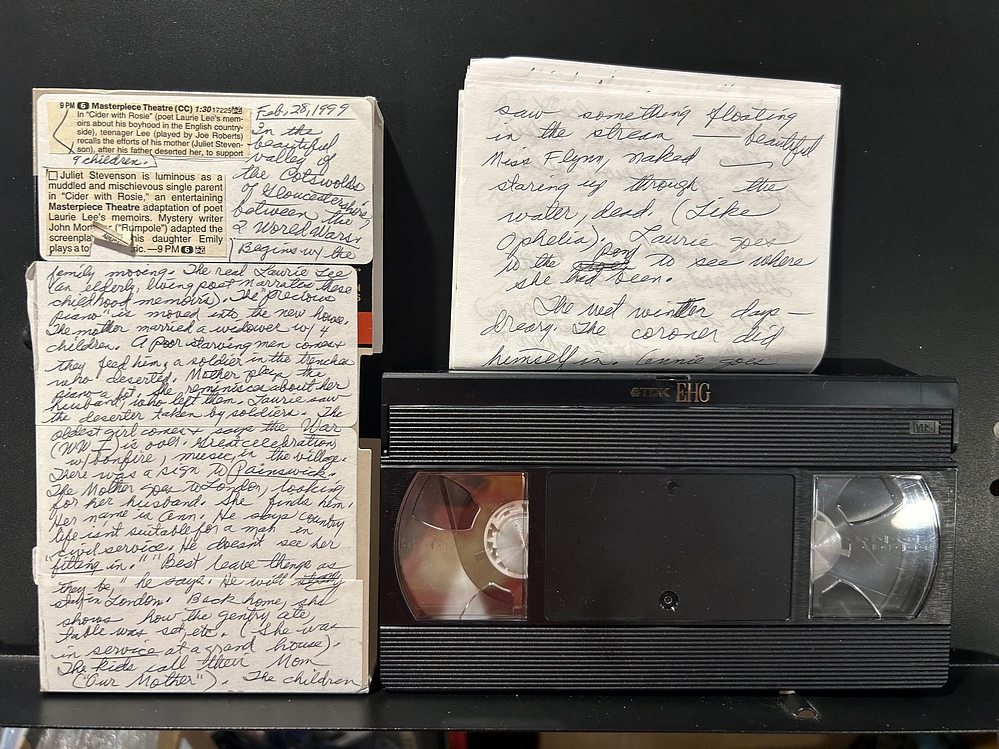 9 PM 6 Masterpiece Theatre (CC) 1:30 17225
In "Cider with Rosie" (poet Laurie Lee's mem-
oirs about his boyhood in the English country-
side), teenager Lee (played by Joe Roberts)
recalls the efforts of his mother (Juliet Steven-
son), after his father deserted her, to support
9 children.
Juliet Stevenson is luminous as a
muddled and mischievous single parent
in "Cider with Rosie," an entertaining
Masterpiece Theatre adaptation of poet
Laurie Lee's memoirs. Mystery writer
John Mor ("Rumpole") adapted the
screenpla his daughter Emily
plays a to ic. —9 PM 6
Feb. 28, 1999
In the
beautiful
valley of
the Cotswolds
of Gloucestershire,
between the
2 World Wars.
Begins w/ the
family moving. The real Laurie Lee
(an elderly, living poet narrates these
childhood memoirs). The "precious
piano" is moved into the new house.
The mother married a widower w/ 4
children. A poor starving man comes &
they feed him, a soldier in the trenches
who deserted. Mother plays the
piano a lot. She reminisces about her
husband, who left them. Laurie saw
the deserter taken by soldiers. The
oldest girl comes & says the War
(WW I) is over. Great celebration
w/ bonfire, music, in the village.
There was a sign to Painswick.
The Mother goes to London, looking
for her husband. She finds him.
Her name is Ann. He says country
life isn't suitable for a man in
"civil service. He doesn't see her
fitting in." "Best leave things as
they be," he says. He will
stay in London. Back home, she
shows how the gentry ate,
table was set, etc. (She was
in service at a grand house).
The kids call their Mom
("Our Mother"). The children
saw something floating
in the stream — beautiful
Miss Flynn, naked —
staring up through the
water, dead. (Like
Ophelia). Laurie goes
to the Pond to see where
she had been.
The wet winter days —
dreary. The coroner did
himself in. Annie goes
TDK EHG
VHS